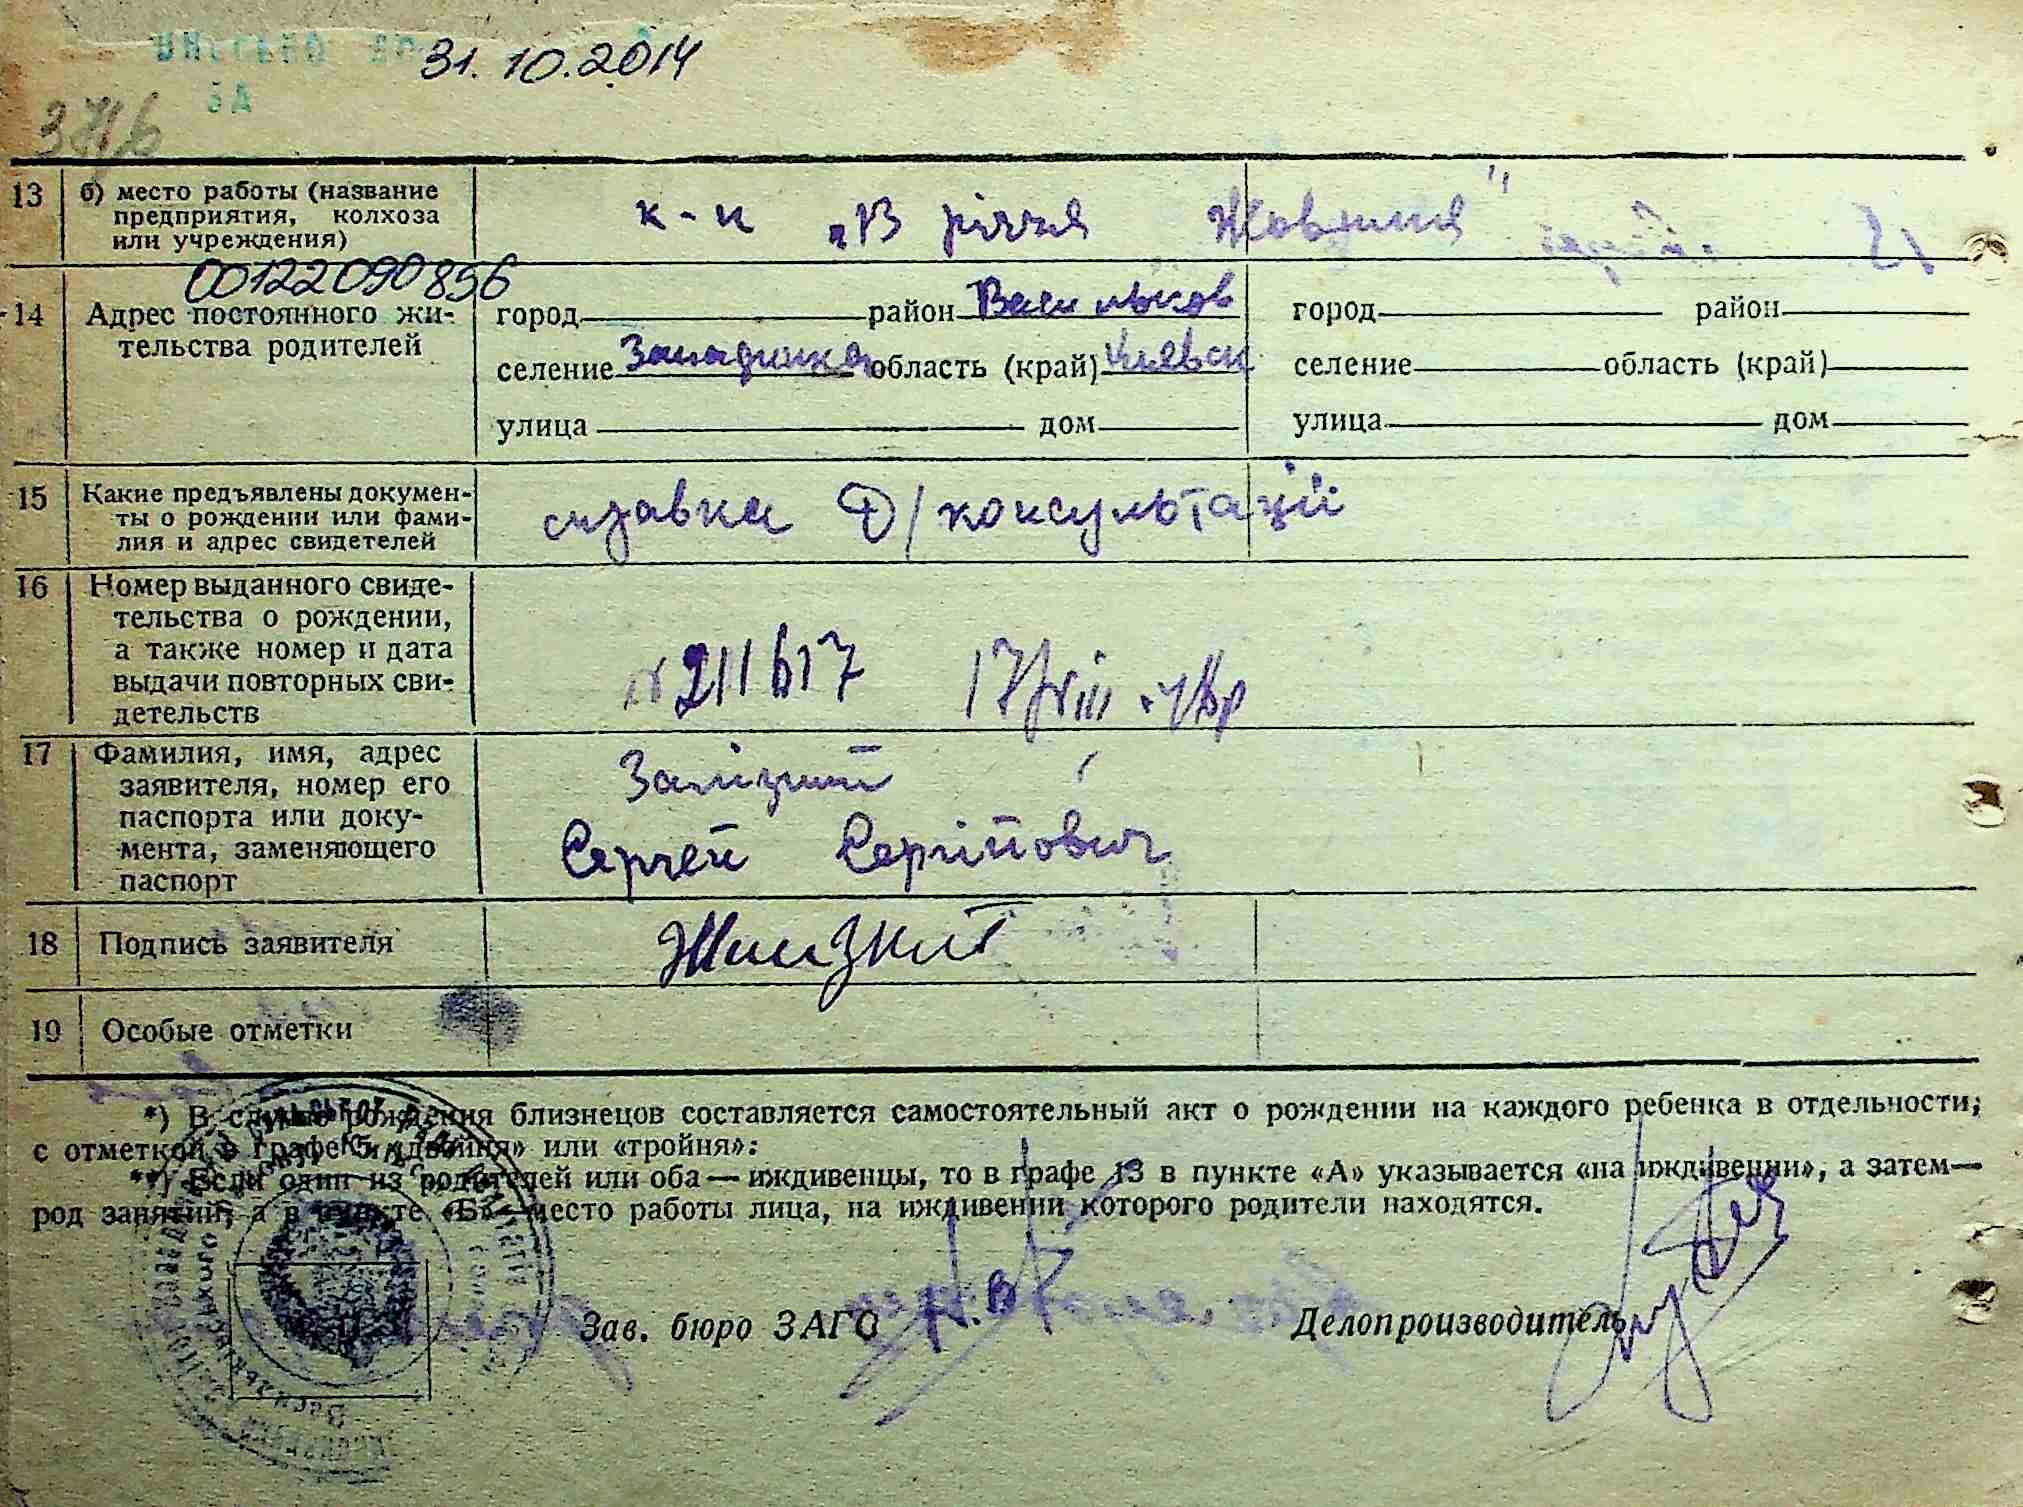 31.10.2014
13 б) место работы (название
предприятия, колхоза
или учреждения)
к-п „В річчя Жовтня"
00122090856
14 Адрес постоянного жи-
тельства родителей
город район Васильков город район
селение область (край) Киевск селение область (край)
улица дом улица дом
15 Какие предъявлены докумен-
ты о рождении или фами-
лия и адрес свидетелей
справка Д/консультації
16 Номер выданного свиде-
тельства о рождении,
а также номер и дата
выдачи повторных сви-
детельств
№ 211617 17/VIII
17 Фамилия, имя, адрес
заявителя, номер его
паспорта или доку-
мента, заменяющего
паспорт
Сергей Сергійович
18 Подпись заявителя
19 Особые отметки
*) В случае рождения близнецов составляется самостоятельный акт о рождении на каждого ребенка в отдельности;
с отметкой в графе 5 «двойня» или «тройня»:
**) Если один из родителей или оба — иждивенцы, то в графе 13 в пункте «А» указывается «на иждивении», а затем—
род занятий, а в пункте «Б»—место работы лица, на иждивении которого родители находятся.
Зав. бюро ЗАГС Делопроизводитель